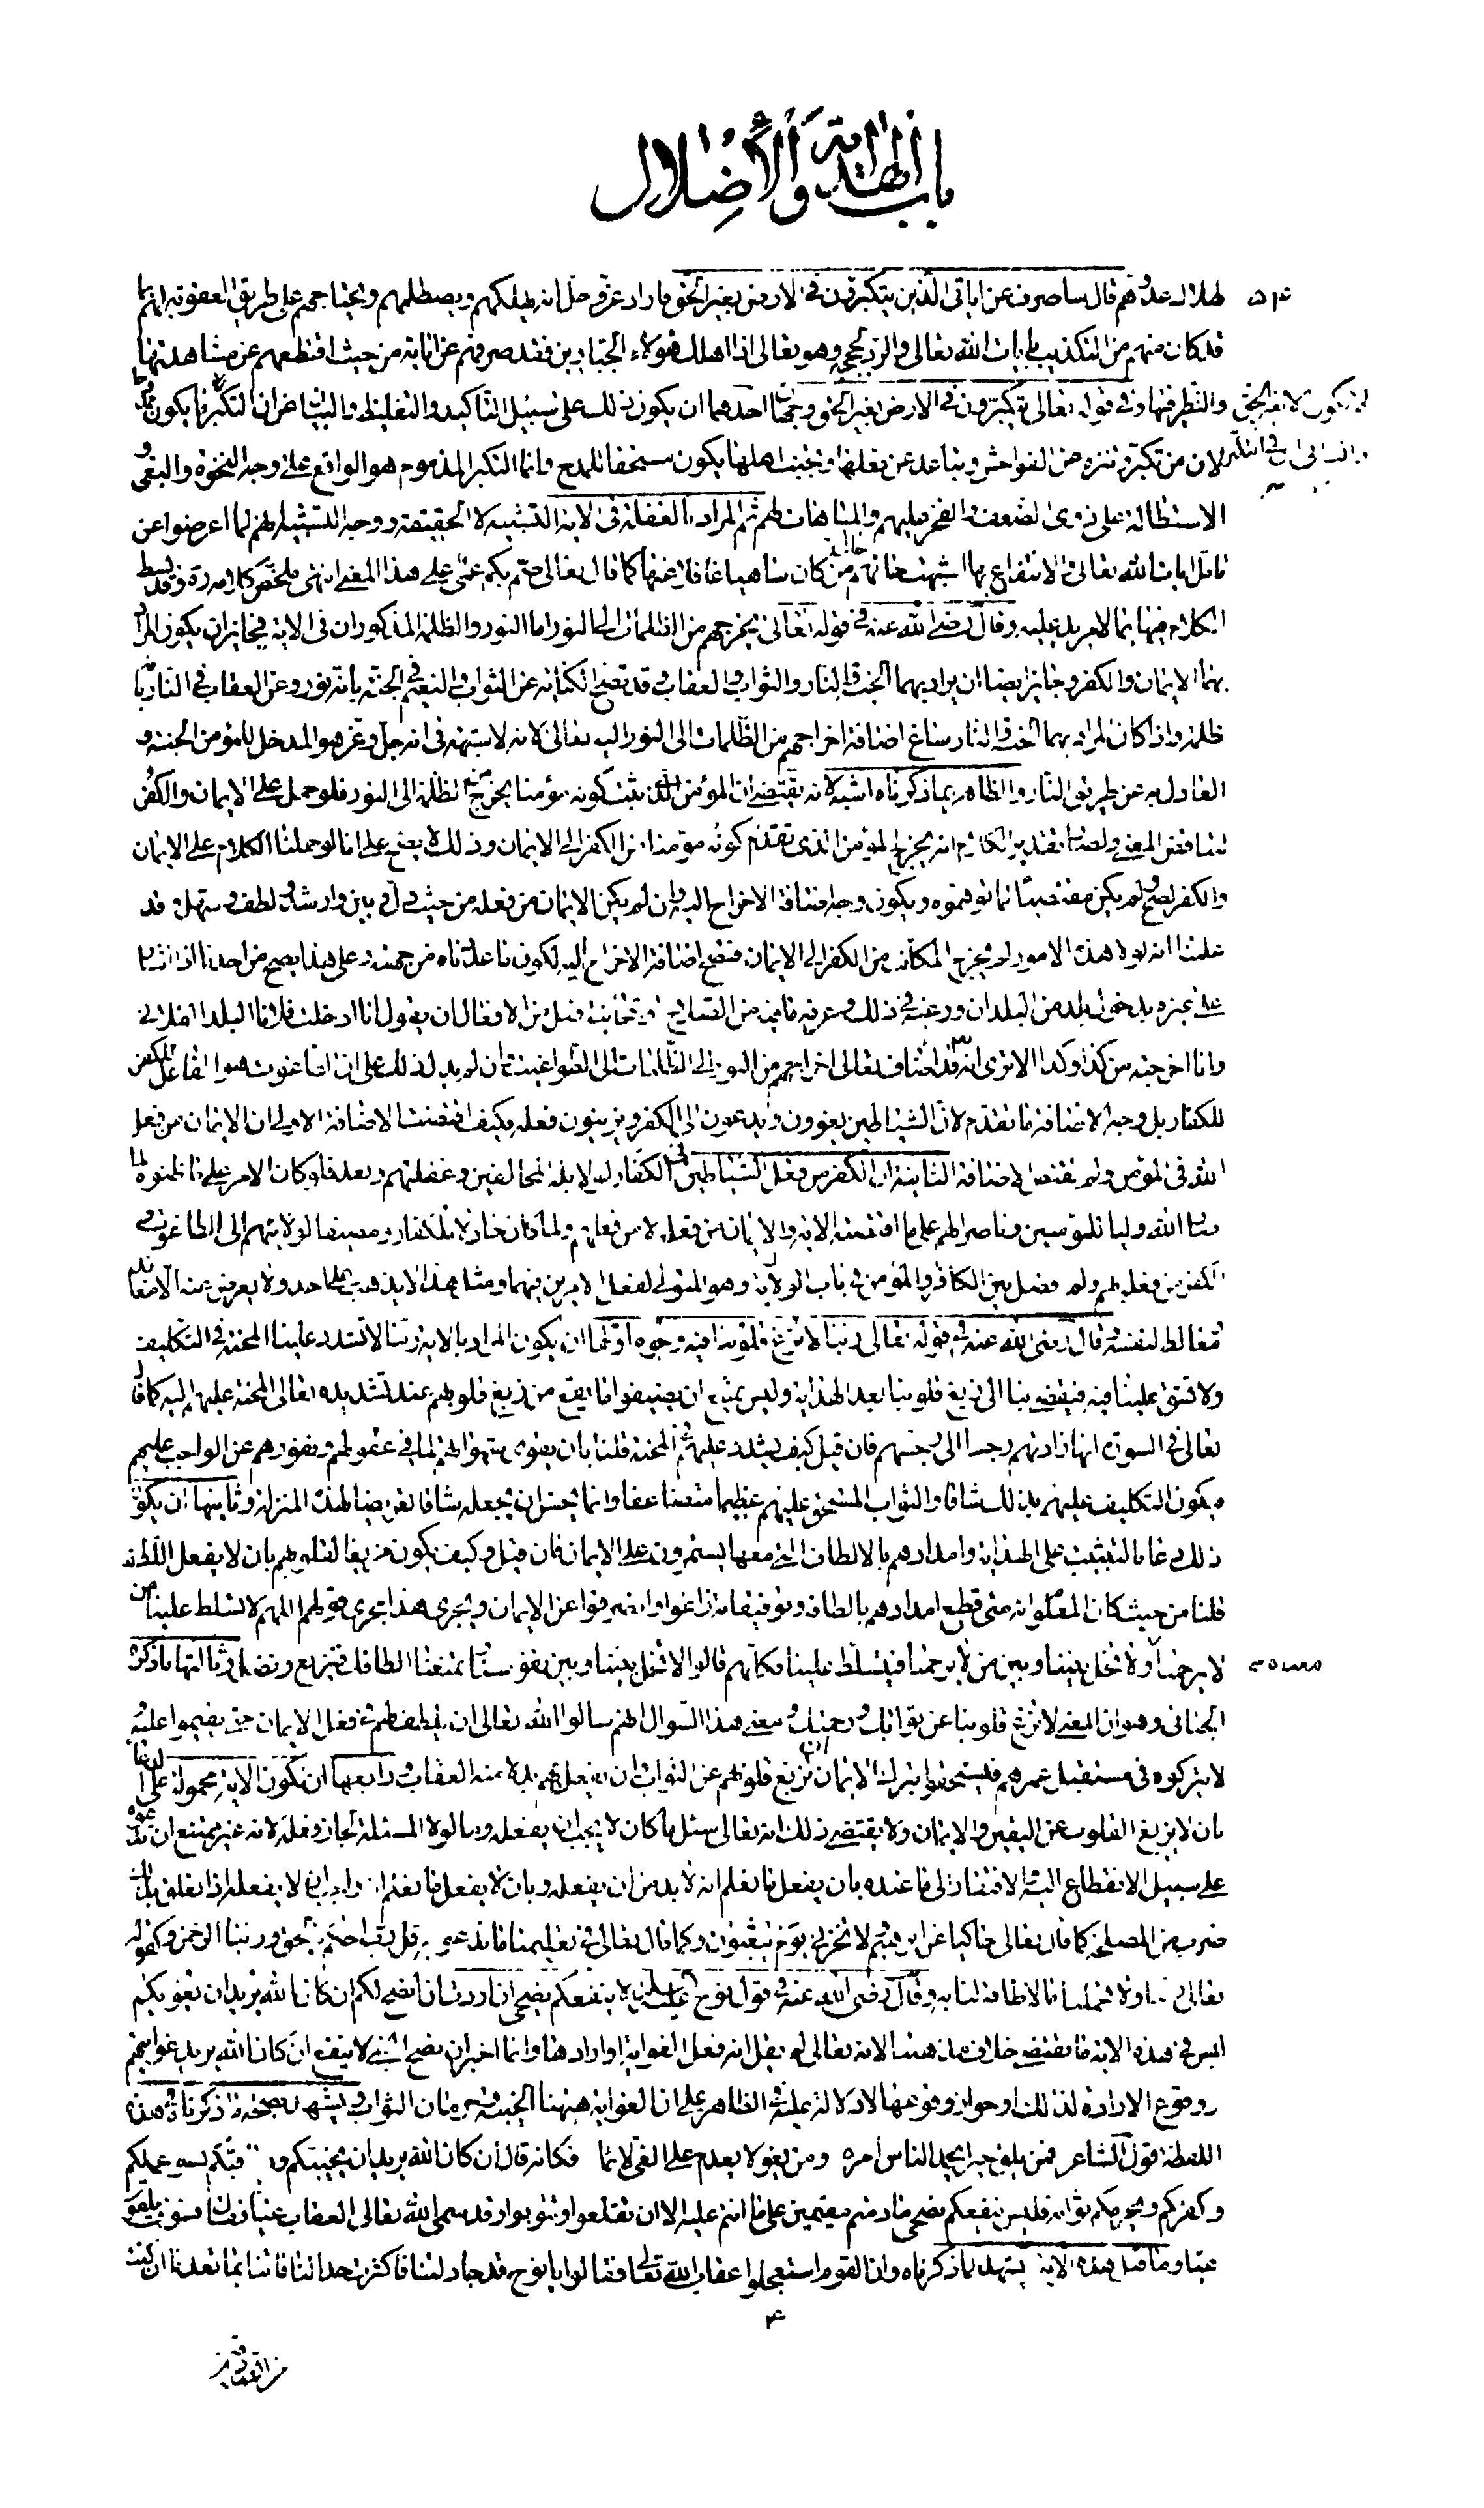 باب الهداية والأضلال
لهلاك عدوهم قال ساصرف عن اياتى الذين يتكبرون فى الارض بغير الحق فاراد عز وجل انه يهلكهم ويصطلمهم ويجتاحهم على طريق العقوبة لهم بما
قد كان منهم من التكذيب بايات الله تعالى والرد لحججه وهو تعالى اذا اهلك هؤلاء الجبارين فقد صرفهم عن اياته من حيث اقتطعهم عن مشاهدتها
والنظر فيها وفى قوله تعالى يتكبرون فى الارض بغير الحق وجهان احدهما ان يكون ذلك على سبيل التاكيد والتغليظ والبيان ان التكبر لا يكون
لان من تكبر وتنزه عن الفواحش وتباعد عن فعلها وتجنب اهلها يكون مستحقا للمدح وانما التكبر المذموم هو الواقع على وجه النخوة والبغى و
الاستطالة على ذوى الضعف والفخر عليهم والمباهات لهم ثم المراد بالغفلة فى الاية التشبيه لا الحقيقة ووجه التشبيه انهم لما اعرضوا عن
تامل ايات الله تعالى والانتفاع بها اشبهت حالهم من كان ساهيا غافلا عنها كما قال تعالى صم بكم عمى على هذا المعنى انتهى ملخص كلامه ره وقد بسط
الكلام فيها بما لا مزيد عليه وقال رضى الله عنه فى قوله تعالى يخرجهم من الظلمات الى النور اما النور والظلمة المذكوران فى الاية فجائز ان يكون المراد
بهما الايمان والكفر وجائز ايضا ان يراد بهما الجنة والنار والثواب والعقاب وقد تصح الكناية عن الثواب والنعيم فى الجنة بانه نور وعن العقاب فى النار بانه
ظلمة واذا كان المراد بهما الجنة والنار ساغ اضافة اخراجهم من الظلمات الى النور اليه تعالى لانه لا شبهة فى انه جل وعز هو المدخل للمؤمن الجنة و
العادل به عن طريق النار والظاهر بما ذكرناه اشبه لانه يقتضى ان المؤمن الذى ثبت كونه مؤمنا يخرج من الظلمة الى النور فلو حمل على الايمان والكفر
لتناقض المعنى ولصار تقدير الكلام انه يخرج المؤمن الذى تقدم كونه مؤمنا من الكفر الى الايمان وذلك لا يصح على انا لو حملنا الكلام على الايمان
والكفر لصح ولم يكن مقتضيا لما توهموه ويكون وجه اضافة الاخراج اليه وان لم يكن الايمان من فعله من حيث دل وبين وارشد ولطف وسهل وقد
علمنا انه لولا هذه الامور لم يخرج المكلف من الكفر الى الايمان فتصح اضافة الاخراج اليه لكون ما عددناه من جهته وعلى هذا يصح من احدنا اذا اشار
على غيره بدخول بلد من البلدان ورغبه فى ذلك وعرفه ما فيه من الصلاح ان يقول انا ادخلت فلانا البلد الفلانى
وانا اخرجته من كذا وكذا الا ترى انه قد اضاف تعالى اخراجهم من النور الى الظلمات الى الطواغيت وان لم يدل ذلك على ان الطاغوت هو الفاعل للكفر
للكفار بل وجه الاضافة ما تقدم لان الشياطين يغوون ويدعون الى الكفر ويزينون فعله فكيف اقتضت الاضافة الاولى ان الايمان من فعل
الله فى المؤمن ولم تقتض الاضافة الثانية ان الكفر من فعل الشياطين فى الكفار لولا بله المخالفين وغفلتهم وبعد فلو كان الامر على ما ظنوه لما
صار الله وليا للمؤمنين وناصرا لهم على ما اقتضته الاية والايمان من فعله لا من فعلهم ولما كان خاذلا للكفار ومضيفا لولايتهم الى الطاغوت و
الكفر من فعله فيهم ولم فصل بين الكافر والمؤمن فى باب الولاية وهو المتولى لفعل الامرين فيهما ومثل هذا لا يذهب على احد ولا يعرض عنه الا معاند
مغالط لنفسه وقال رضى الله عنه فى قوله تعالى ربنا لا تزغ قلوبنا فيه وجوه اولها ان يكون المراد بالاية ربنا لا تشدد علينا المحنة فى التكليف
ولا تشق علينا فيه فيفضى بنا الى زيغ قلوبنا بعد الهداية وليس يمتنع ان يضيفوا ما يقع من زيغ قلوبهم عند تشديده تعالى المحنة عليهم اليه كما قال
تعالى فى السورة انها زادتهم رجسا الى رجسهم فان قيل كيف يشدد عليهم فى المحنة قلنا بان يقوى شهواتهم لما فى عقولهم ونفورهم عن الواجب عليهم
فيكون التكليف عليهم بذلك شاقا والثواب المستحق عليهم عظيما متضاعفا وانما يحسن ان يجعله شاقا تعريضا لهذه المنزلة وثانيها ان يكون
ذلك دعاء بالتثبيت على الهداية وامدادهم بالالطاف التى معها يستمرون على الايمان فان قيل وكيف يكون مزيغا لقلوبهم بان لا يفعل اللطف
قلنا من حيث كان المعلوم انه متى قطع امدادهم بالطافه وتوفيقاته زاغوا وانصرفوا عن الايمان ويجرى هذا مجرى قولهم اللهم لا تسلط علينا من
لا يرحمنا اى لا تخل بيننا وبين من لا يرحمنا فيتسلط علينا فكانهم قالوا لا تخل بيننا وبين نفوسنا تمنعنا الطافك فنزيغ ونضل وثالثها ما ذكره
الجبائى وهو ان المعنى لا تزغ قلوبنا عن ثوابك ورحمتك ومعنى هذا السؤال انهم سالوا الله تعالى ان يلطف لهم فى فعل الايمان حتى يقيموا عليه
لا يتركوه فى مستقبل عمرهم فيستحقوا بترك الايمان ان تزيغ قلوبهم عن الثواب وان يفعل بهم بدلا منه العقاب ورابعها ان تكون الاية محمولة على الدعاء
بان لا يزيغ القلوب عن اليقين والايمان ولا يقتضى ذلك انه تعالى سئل ما كان لا يجب ان يفعله وما لولا المسئلة لجاز فعله لانه غير ممتنع ان ندعوه
على سبيل الانقطاع اليه والافتقار الى ما عنده بان يفعل ما نعلم انه لا بد من ان يفعله وبان لا يفعل ما نعلم انه واجب ان لا يفعله اذا تعلق بذلك
ضرب من المصلحة كما قال تعالى حاكيا عن ابراهيم ولا تخزنى يوم يبعثون وكما قال تعالى فى تعليمنا ما ندعو به قل رب احكم بالحق وربنا الرحمن وكقوله
تعالى ربنا ولا تحملنا ما لا طاقة لنا به وقال رضى الله عنه فى قول نوح عليه السلام لا ينفعكم نصحى ان اردت ان انصح لكم ان كان الله يريد ان يغويكم
ليس فى هذه الاية ما يقتضى خلاف مذهبنا لانه تعالى لم يقل انه فعل الغواية او ارادها وانما اخبر ان نصح النبى لا ينفع ان كان الله يريد غوايتهم
ووقوع الارادة لذلك او جواز وقوعها لا دلالة عليه فى الظاهر على ان الغواية هيهنا الخيبة وحرمان الثواب ويشهد بصحة ما ذكرناه فى هذه
اللفظة قول الشاعر فمن يلق خيرا يحمد الناس امره ومن يغو لا يعدم على الغى لائما فكانه قال ان كان الله يريد ان يخيبكم ويعاقبكم بسوء عملكم
وكفركم ويحرمكم ثوابه فليس ينفعكم نصحى ما دمتم مقيمين على ما انتم عليه الا ان تقلعوا وتتوبوا وقد سمى الله تعالى العقاب غيا فقال فسوف يلقون
غيا وما قبل هذه الاية يشهد لما ذكرناه وان القوم استعجلوا عقاب الله تعالى فقالوا يا نوح قد جادلتنا فاكثرت جدالنا فاتنا بما تعدنا ان كنت
من الصادقين